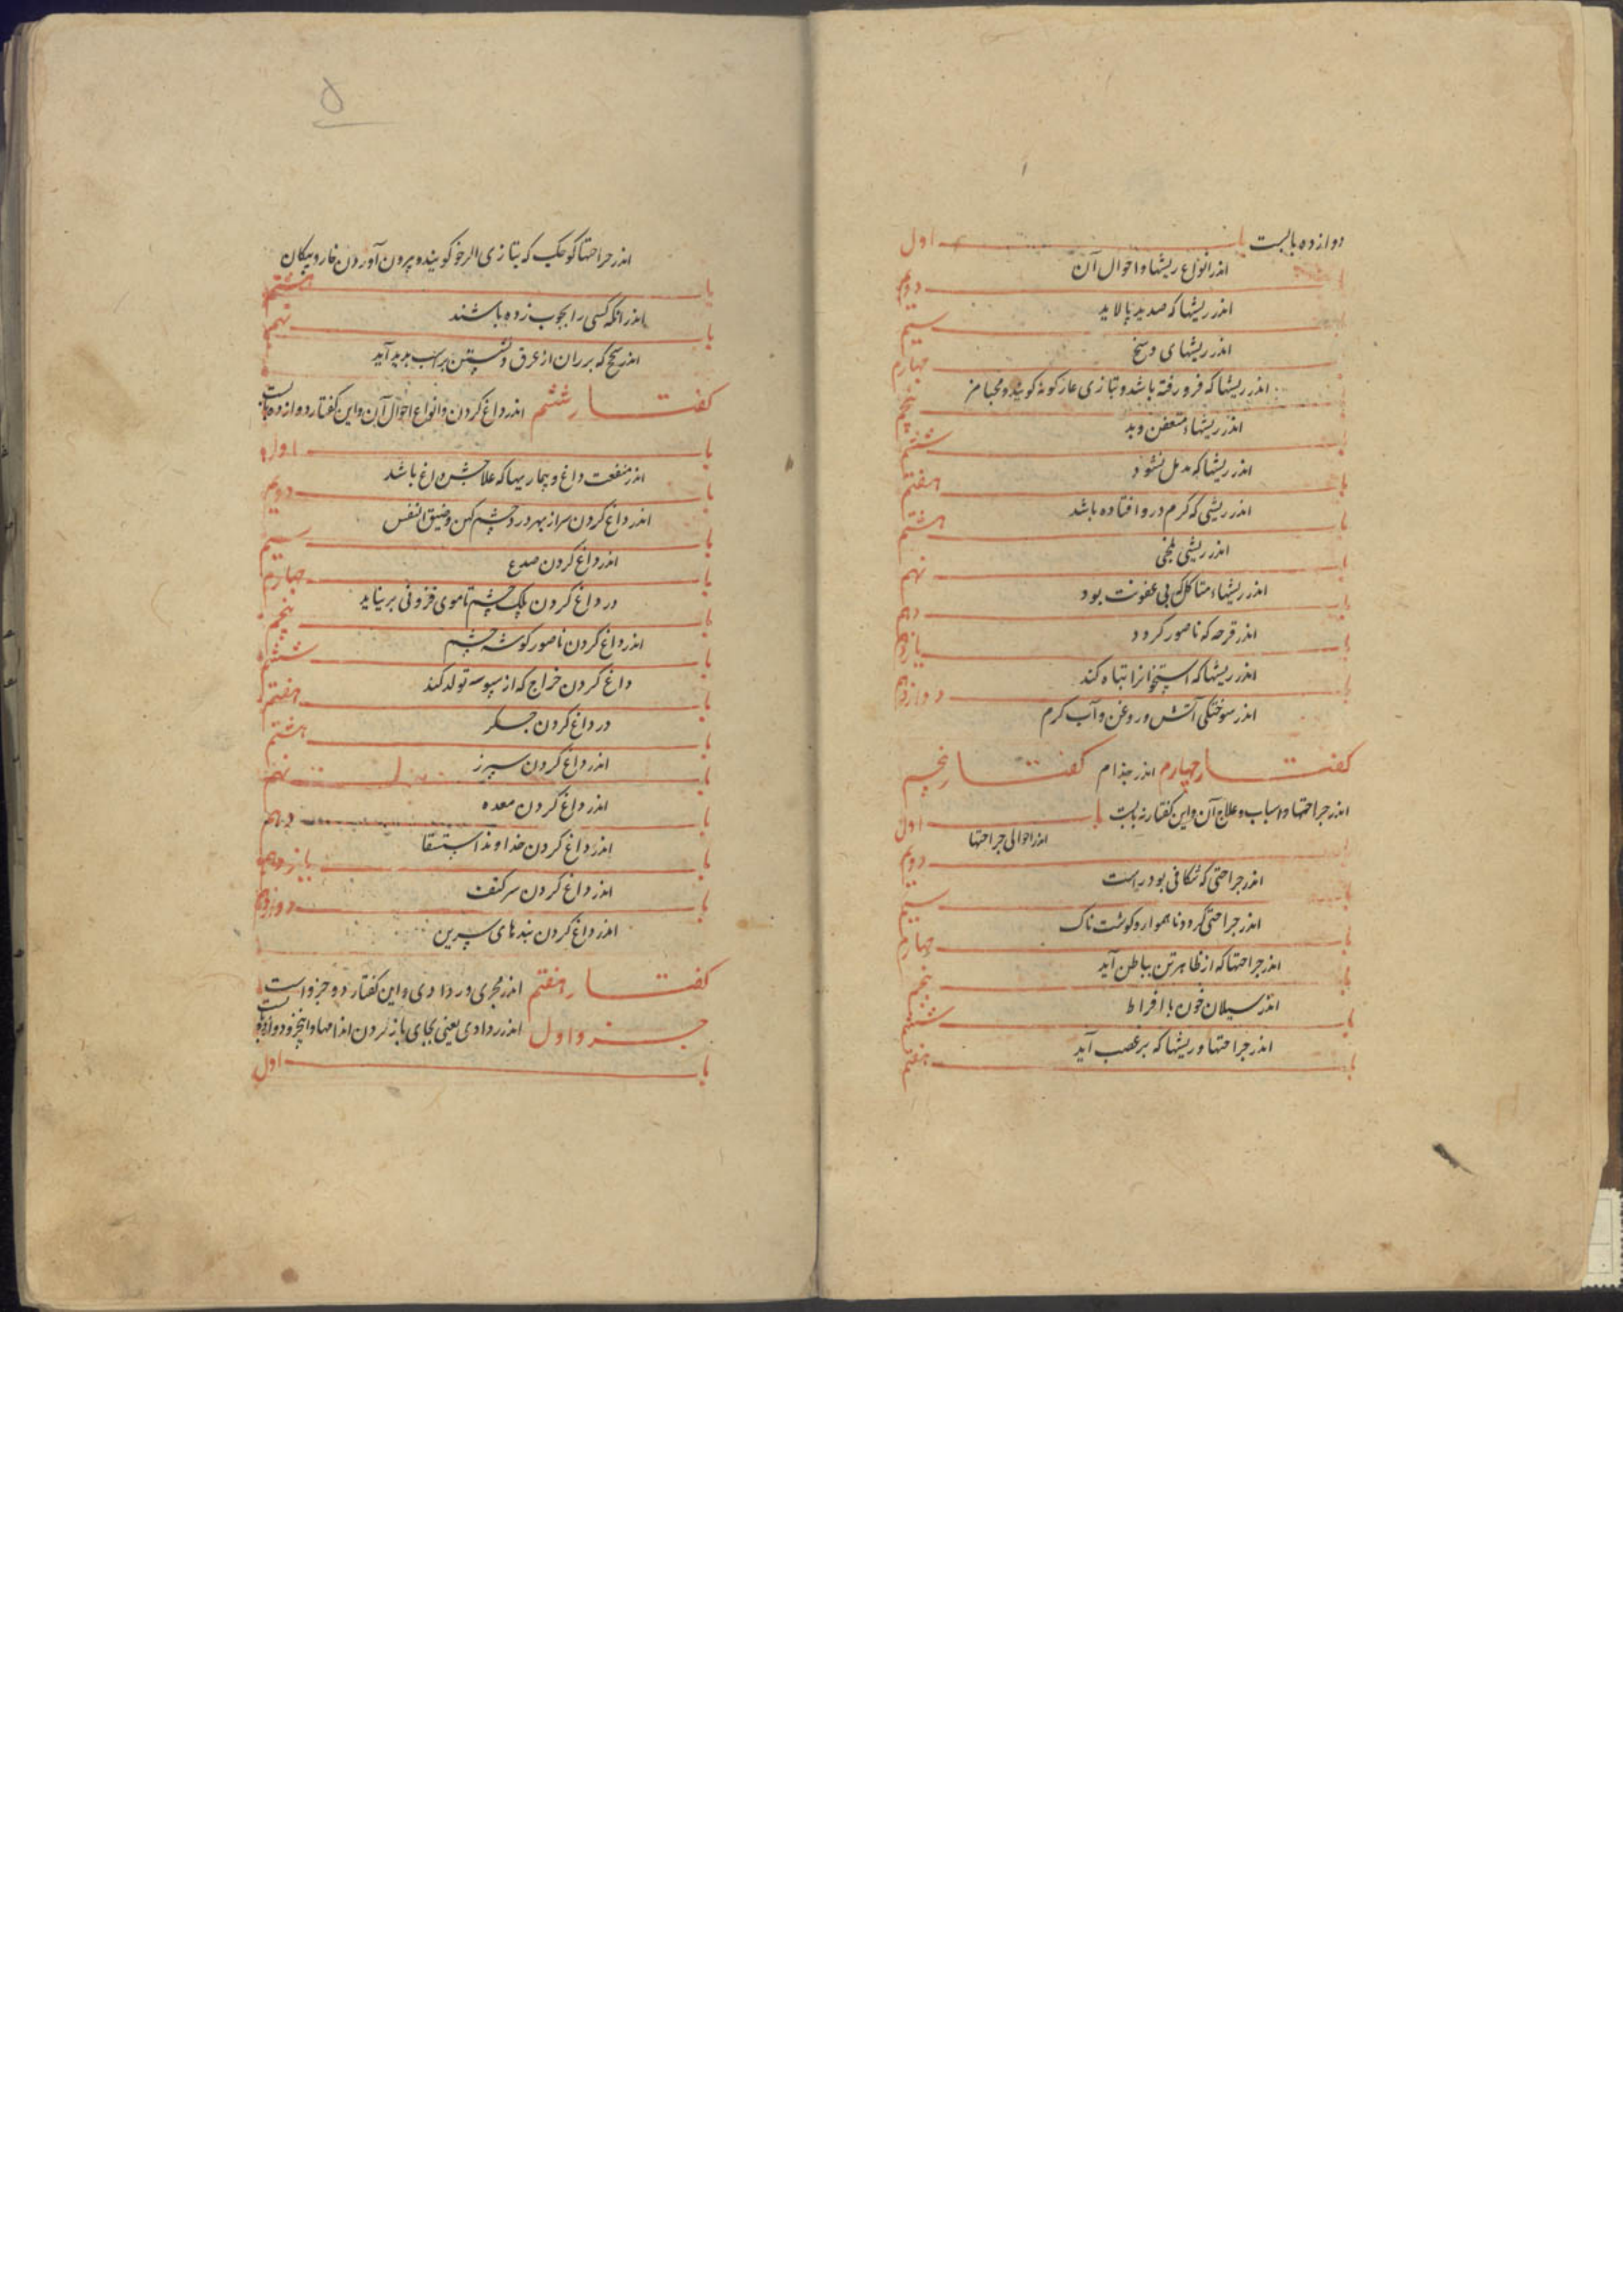 دوازده بابست باب اول
اندر انواع ریشها و احوال آن
باب دویم
اندر ریشها که صدید پالاید
باب سیم
اندر ریشهای وسخ
باب چهارم
اندر ریشها که فرو رفته باشد و بتازی غار گونه گویند و مخبا
باب پنجم
اندر ریشهاء متعفن و بد
باب ششم
اندر ریشها که مدمل نشود
باب هفتم
اندر ریشی که کرم درو افتاده باشد
باب هشتم
اندر ریشی بلخی
باب نهم
اندر ریشهاء متاکل که بی عفونت بود
باب دهم
اندر قرحه که ناصور گردد
باب یازدهم
اندر ریشها که استخوانرا تباه کند
باب دوازدهم
اندر سوختگی آتش و روغن و آب گرم
گفتار چهارم اندر جذام گفتار پنجم
اندر جراحتها و اسباب و علاج آن و این گفتار نه بابست باب اول
اندر احوالی جراحتها
باب دویم
اندر جراحتی که شکافی بود راست
باب سیم
اندر جراحتی گرد و ناهموار و گوشت ناک
باب چهارم
اندر جراحتها که از ظاهر تن بباطن آید
باب پنجم
اندر سیلان خون با فراط
باب ششم
اندر جراحتها و ریشها که بر عصب آید
باب هفتم
۵
اندر جراحتها کوچک که بتازی الرخو گویند و بیرون آوردن خار و پیکان
باب هشتم
اندر انکه کسی را بچوب زده باشند
باب نهم
اندر سحج که بر ران از عرق و نشستن بر اسب پدید آید
گفتار ششم اندر داغ کردن و انواع احوال آن و این گفتار دوازده بابست
باب اول
اندر منفعت داغ و بیماریها که علاجش داغ باشد
باب دویم
اندر داغ کردن سر از بهر درد چشم کهن و ضیق النفس
باب سیم
اندر داغ کردن صدغ
باب چهارم
در داغ کردن پلک چشم تا موی فزونی برنیاید
باب پنجم
اندر داغ کردن ناصور گوشه چشم
باب ششم
داغ کردن خراج که از سپوسه تولد کند
باب هفتم
در داغ کردن جگر
باب هشتم
اندر داغ کردن سپرز
باب نهم
اندر داغ کردن معده
باب دهم
اندر داغ کردن خداوند استسقا
باب یازدهم
اندر داغ کردن سر کتف
باب دوازدهم
اندر داغ کردن بندهای سپرین
گفتار هفتم اندر مجری و ردادی و این گفتار دو جزو است
جزو اول اندر ردادی یعنی بجای باز کردن اندامها و این جزو دوازده بابست
باب اول